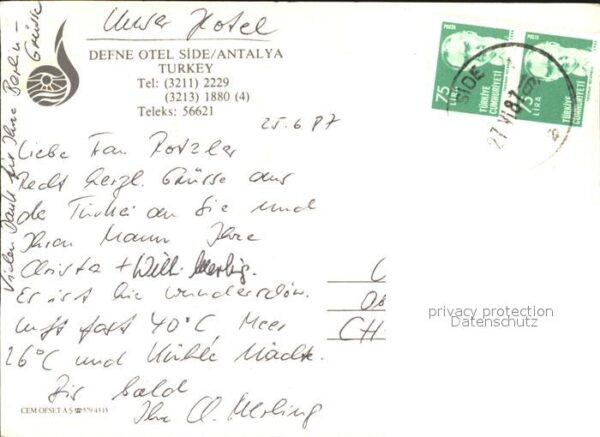 Unser Hotel
DEFNE OTEL SİDE/ANTALYA
TURKEY
Tel: (3211) 2229
(3213) 1880 (4)
Teleks: 56621
25.6.87
Liebe Frau Rotzler
Recht herzl. Grüsse aus
der Türkei an Sie und
Ihren Mann Ihre
Christa + Willi Merling.
Es ist hier wunderschön.
Luft fast 40°C Meer
26°C und kühle Nächte.
Bis bald
Ihre C. Merling
Vielen Dank für Ihre Berlin-
Grüsse
CEM OFSET A.Ş ☎ 579 4315
POSTA
75
LİRA
TÜRKİYE
CUMHURİYETİ
POSTA
75
LİRA
TÜRKİYE
CUMHURİYETİ
SİDE
27 VI 87
CH
privacy protection
Datenschutz